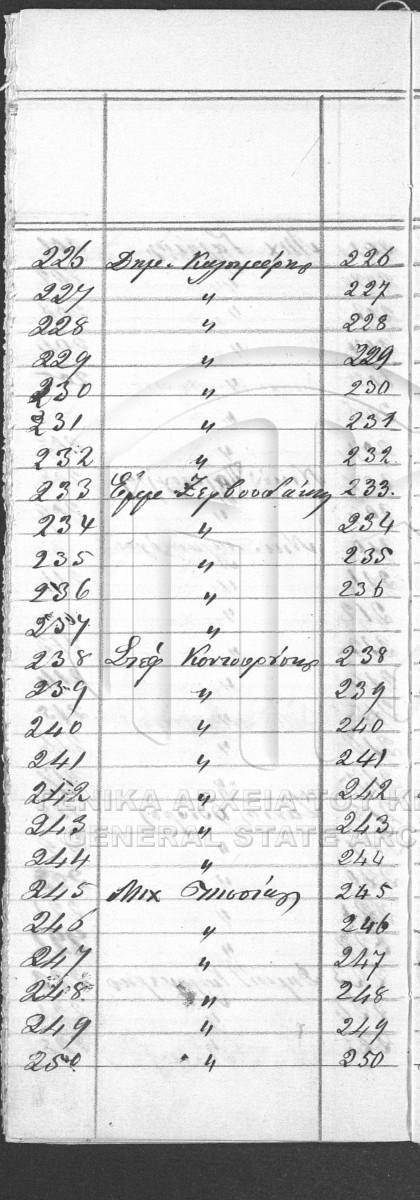 226 Δημ. Καλομοίρης 226
227 〃 227
228 〃 228
229 〃 229
230 〃 230
231 〃 231
232 〃 232
233 Εμμ 233.
234 〃 234
235 〃 235
236 〃 236
237 〃
238 Στεφ 238
239 〃 239
240 〃 240
241 〃 241
242 〃 242
ΓΕΝΙΚΑ ΑΡΧΕΙΑ ΤΟΥ Κ
243 〃 243
GENERAL STATE ARC
244 〃 244
245 Μιχ 245
246 〃 246
247 〃 247
248 〃 248
249 〃 249
250 〃 250